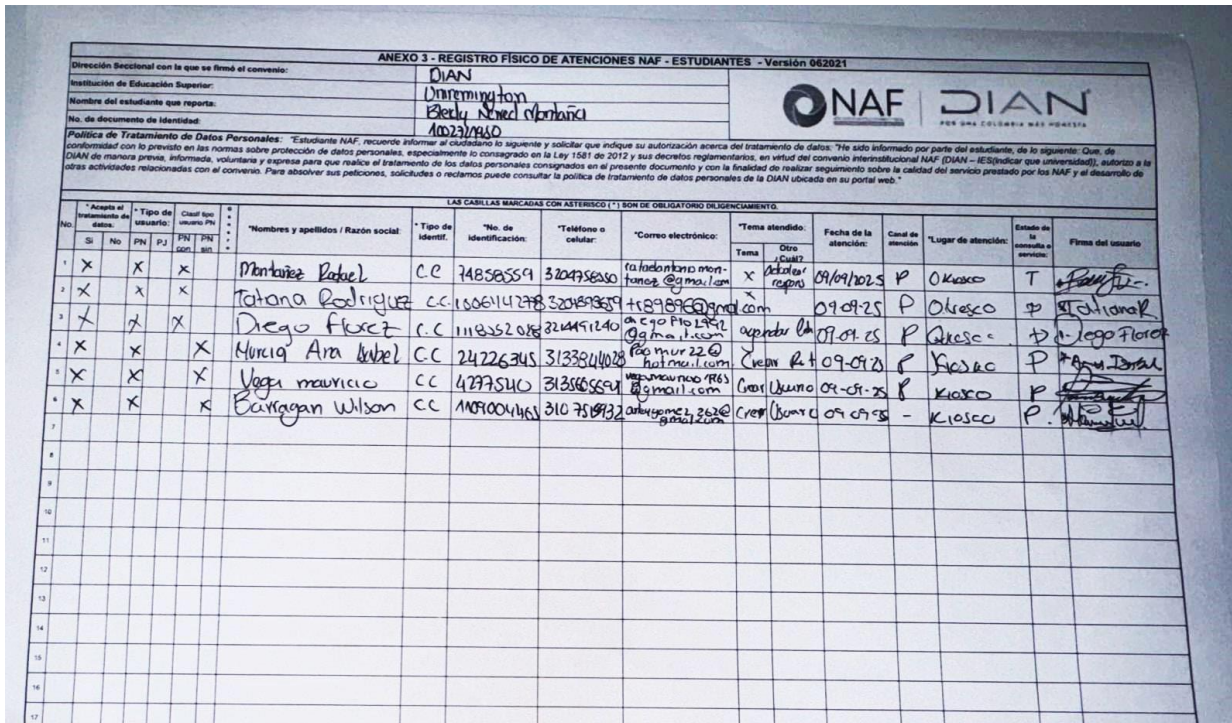 ANEXO 3 - REGISTRO FÍSICO DE ATENCIONES NAF - ESTUDIANTES - Versión 062021
Dirección Seccional con la que se firmó el convenio: DIAN
Institución de Educación Superior: Uniremington
Nombre del estudiante que reporta: Montaña
No. de documento de Identidad:
NAF DIAN
POR UNA COLOMBIA MÁS HONESTA
Política de Tratamiento de Datos Personales: "Estudiante NAF, recuerde informar al ciudadano lo siguiente y solicitar que indique su autorización acerca del tratamiento de datos: "He sido informado por parte del estudiante, de lo siguiente: Que, de
conformidad con lo previsto en las normas sobre protección de datos personales, especialmente lo consagrado en la Ley 1581 de 2012 y sus decretos reglamentarios, en virtud del convenio interinstitucional NAF (DIAN – IES(indicar que universidad)), autorizo a la
DIAN de manera previa, informada, voluntaria y expresa para que realice el tratamiento de los datos personales consignados en el presente documento y con la finalidad de realizar seguimiento sobre la calidad del servicio prestado por los NAF y el desarrollo de
otras actividades relacionadas con el convenio. Para absolver sus peticiones, solicitudes o reclamos puede consultar la política de tratamiento de datos personales de la DIAN ubicada en su portal web."
LAS CASILLAS MARCADAS CON ASTERISCO ( * ) SON DE OBLIGATORIO DILIGENCIAMIENTO.
No. *Acepta el tratamiento de datos. *Tipo de usuario: Clasif tipo usuario PN *Nombres y apellidos / Razón social: *Tipo de identif. *No. de identificación: *Teléfono o celular: *Correo electrónico: *Tema atendido: Fecha de la atención: Canal de atención *Lugar de atención: Estado de la consulta o servicio: Firma del usuario
Si No PN PJ PN con PN sin Tema Otro ¿Cuál?
1 X X X Montañez Rafael C.C 74858559 3204758350 @gmail.com X 09/09/2025 P T
2 X X X Tatiana Rodriguez C.C. X 09-09-25 P TatianaR
3 X X X Diego Florez C.C 3214491240 @gmail.com 09-09-25 P Diego Florez
4 X X X Murcia Ana Isabel C.C 24226345 3133844028 Paomur22@hotmail.com Crear Rut 09-09-25 P Kiosko P Ana Isabel
5 X X X Vega mauricio CC 4277540 @gmail.com Crear Usuario 09-09-25 P KIOSCO P
6 X X X Barragan Wilson CC 1109004465 @gmail.com Crear Usuario 09-09-25 - KIOSCO P.
7
8
9
10
11
12
13
14
15
16
17